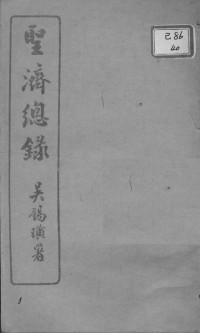 聖濟總錄
吳錫璜署
乙86
40
1